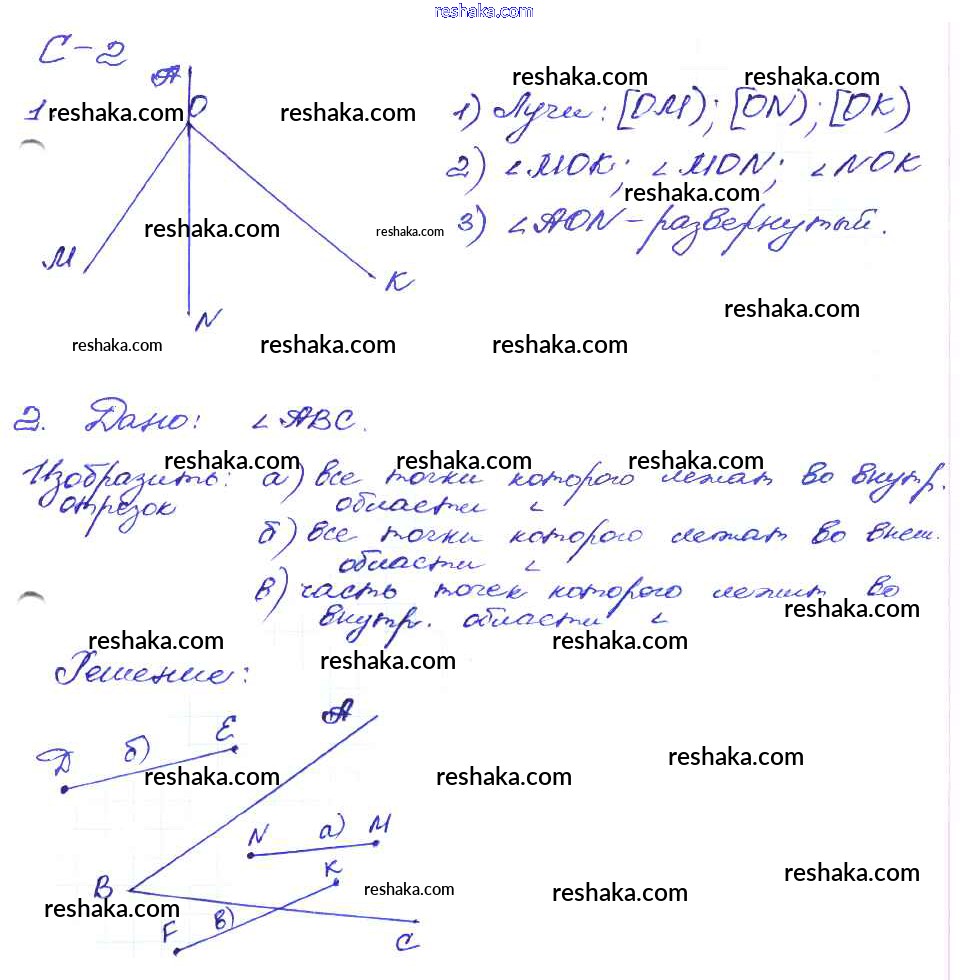 reshaka.com
С-2
A
reshaka.com reshaka.com
1 reshaka.com O reshaka.com 1) Лучи: [OM); [ON); [OK)
2) ∠MOK; ∠MON; ∠NOK
reshaka.com
reshaka.com reshaka.com 3) ∠AON – развернутый.
M K
N
reshaka.com
reshaka.com reshaka.com reshaka.com
2. Дано: ∠ABC.
reshaka.com reshaka.com reshaka.com
Изобразить: а) все точки которого лежат во внутр.
отрезок области ∠
б) все точки которого лежат во внеш.
области ∠
в) часть точек которого лежит во
reshaka.com
внутр. области ∠
reshaka.com reshaka.com reshaka.com
Решение:
A
E
D б)
reshaka.com reshaka.com reshaka.com
N а) M
K
B reshaka.com reshaka.com reshaka.com
reshaka.com
F в)
C